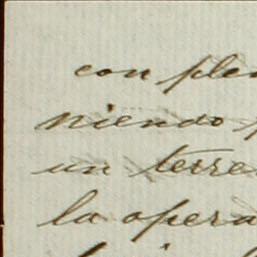 con plen
niendo
un terre
la opera